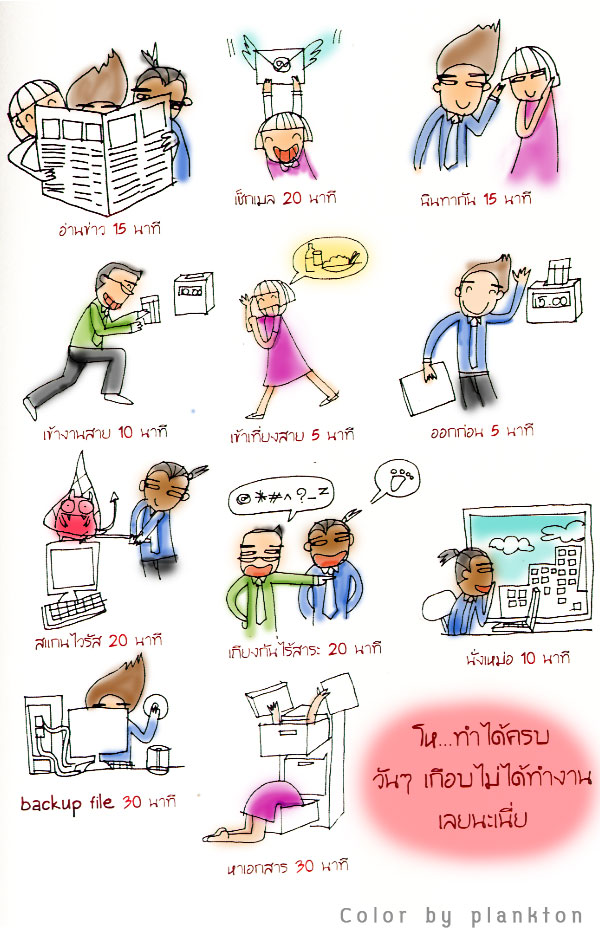 เช็กเมล 20 นาที
นินทากัน 15 นาที
อ่านข่าว 15 นาที
5.00
เข้างานสาย 10 นาที
เข้าเที่ยงสาย 5 นาที
ออกก่อน 5 นาที
@*#^?_z
สแกนไวรัส 20 นาที
เถียงกันไร้สาระ 20 นาที
นั่งเหม่อ 10 นาที
backup file 30 นาที
โห...ทำได้ครบ
วันๆ เกือบไม่ได้ทำงาน
เลยนะเนี่ย
หาเอกสาร 30 นาที
Color by plankton